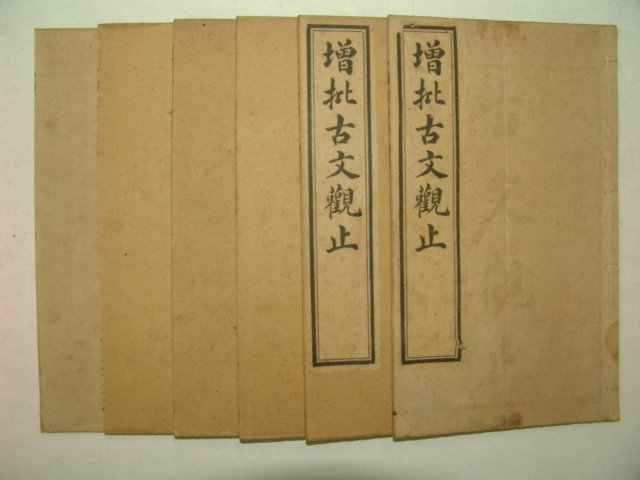 增批古文觀止
增批古文觀止